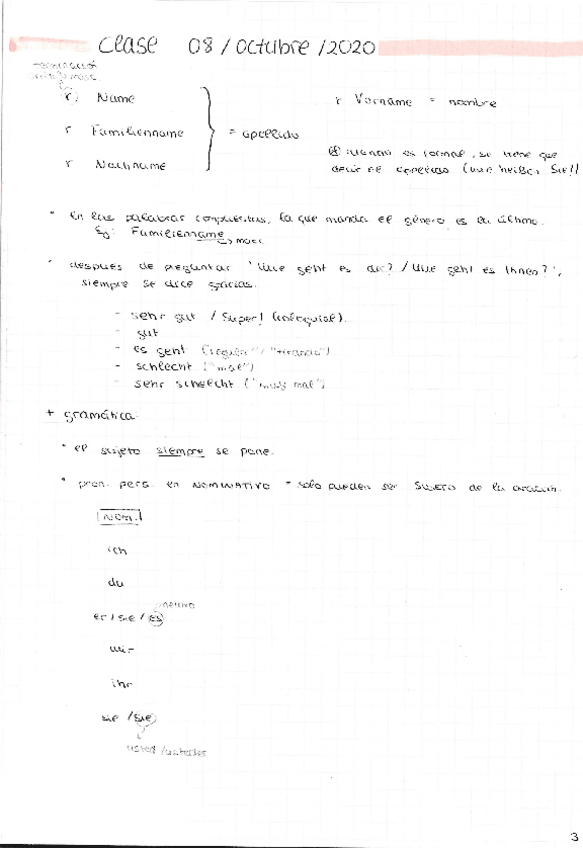 Clase 08 / octubre / 2020
terminación
r Name
r Familienname = apellido
r Nachname
r Vorname = nombre
cuando es formal, se tiene que
decir el apellido (wie heißen Sie?)
en las palabras compuestas, la que manda el género es la última.
Ej: Familienname
masc.
después de preguntar "Wie geht es dir? / Wie geht es Ihnen?",
siempre se dice gracias.
- sehr gut / super! (coloquial).
- gut
- es geht ("regular" / "tirando")
- schlecht ("mal")
- sehr schlecht ("muy mal")
+ gramática
el sujeto siempre se pone.
pron. pers. en NOMINATIVO = solo pueden ser SUJETO de la oración.
NOM.
ich
du
neutro
er / sie / es
wir
ihr
sie / Sie
usted / ustedes
3